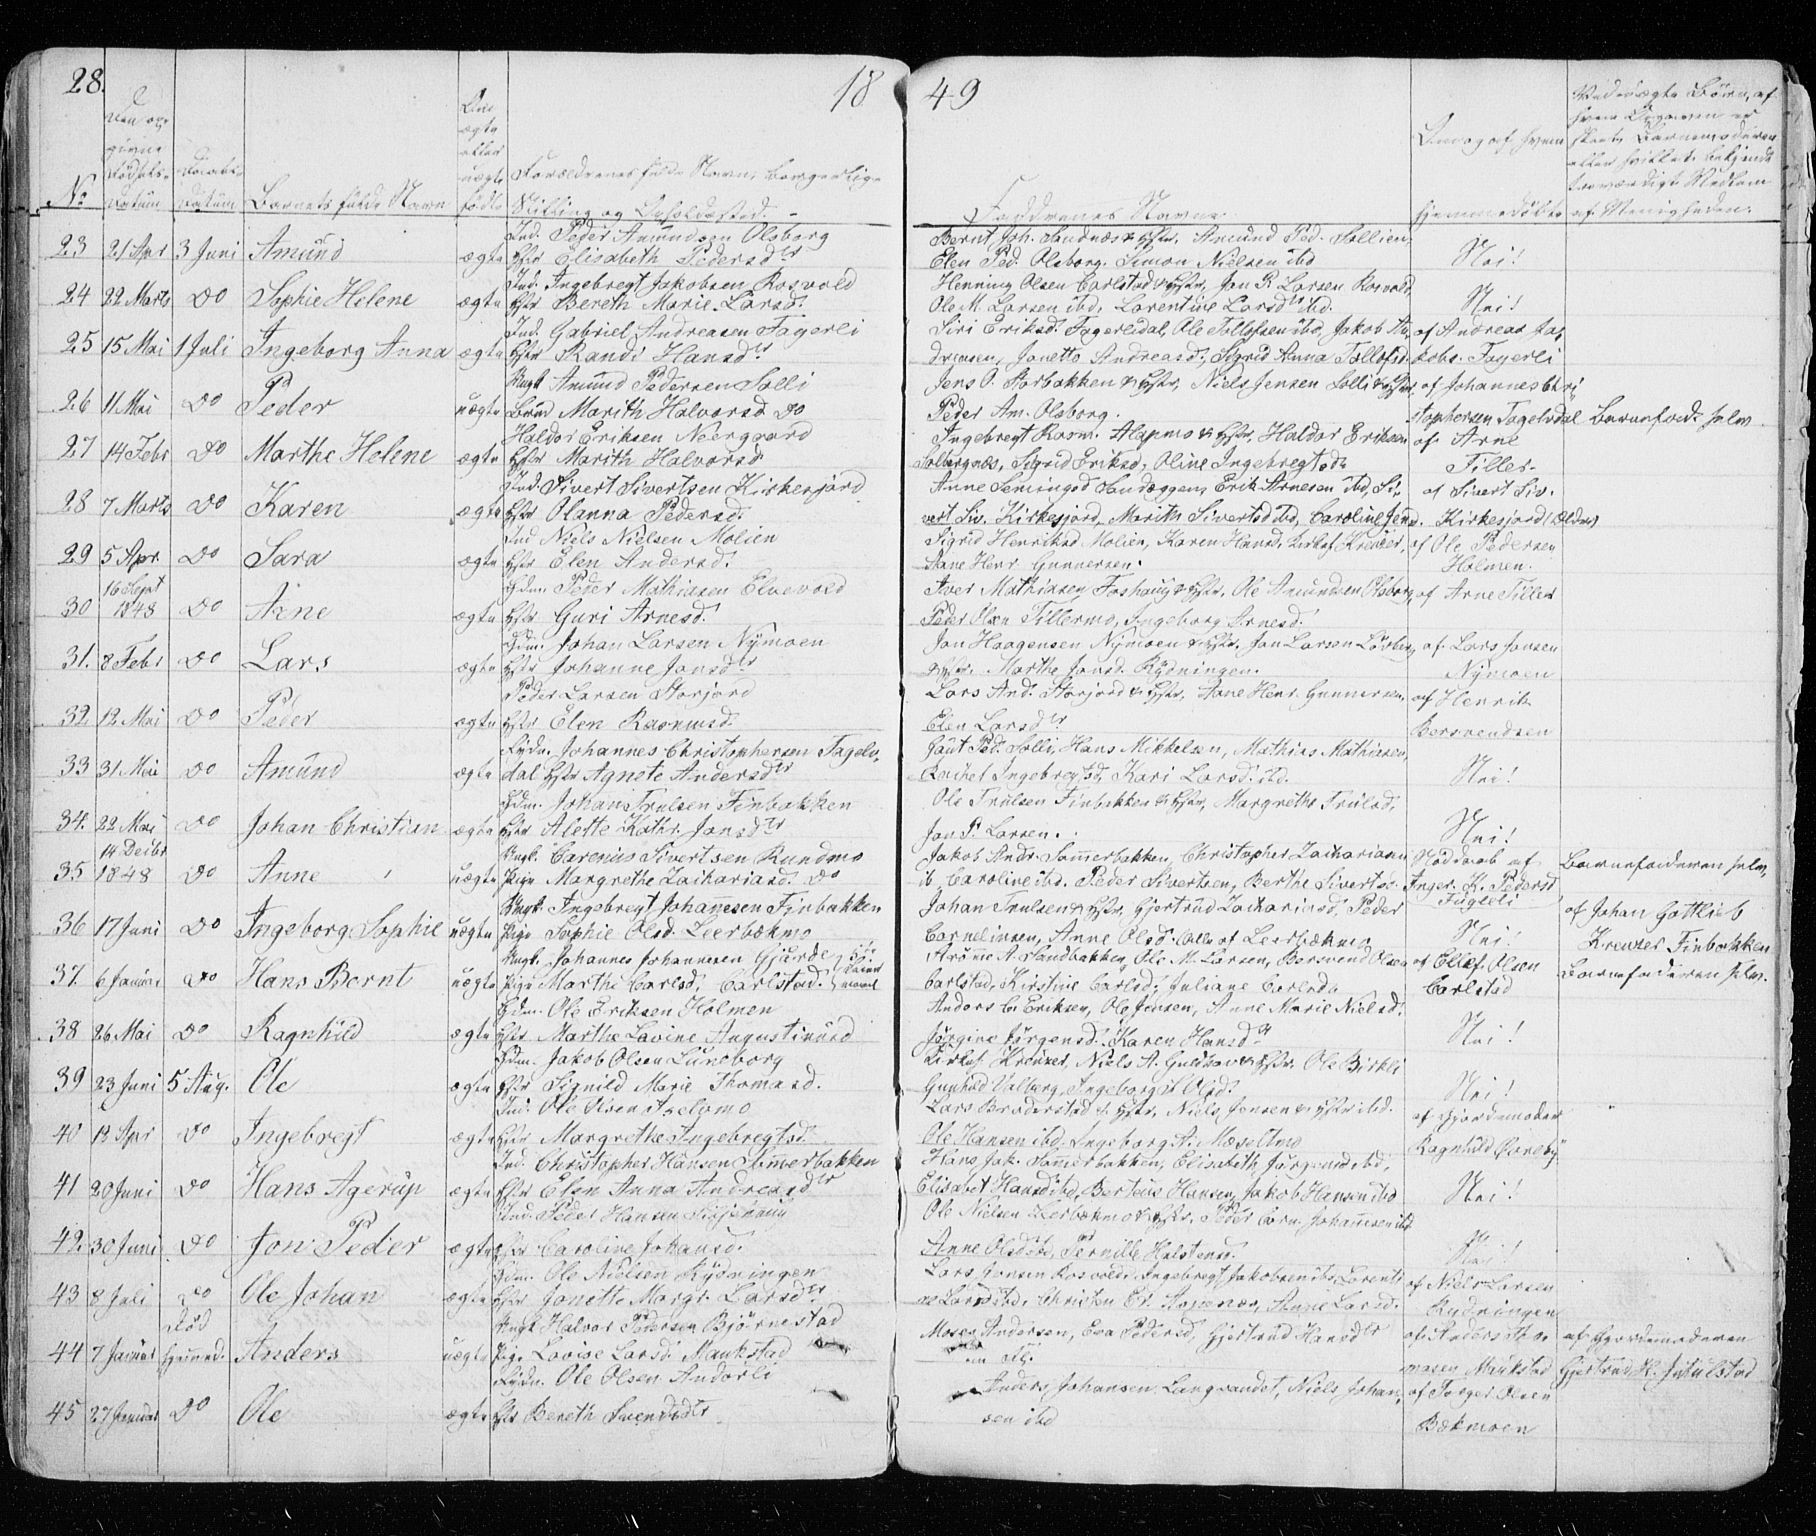 28.
18 49
No
Den op-
givne
Fødsels-
Datum
Daabs-
Datum
Barnets fulde Navn
Om
ægte
eller
uægte
fødte
Forældrenes fulde Navn, borgerlige
Stilling og Opholdssted.
Faddrenes Navne
Om og af hvem
hjemmedøbte
Ved uægte Børn, af
hvem Opgaven er
skeet, Barnemoderen
eller hvilket bekjendt
troværdigt Medlem
af Menigheden.
23 21 Apr 3 Juni Amund ægte Ind. Peder Amundsen Olsborg
Hstr Elisabeth Pedersdtr
Bernt Joh. Sandnæs & Hstr, Amund Ped. Sollien,
Elen Ped. Olsborg. Simon Nielsen ibd
Nei!
24 22 Marts Do Sophie Helene ægte Ind. Ingebregt Jakobsen Rosvold
Hstr Bereth Marie Larsd.
Henning Olsen Carlstad & Hstr, Jon P. Larsen Rosvold,
Ole M. Larsen ibd, Larentine Larsdtr ibd.
Nei!
25 15 Mai 1 Juli Ingeborg Anna ægte Ind. Gabriel Andreasen Fagerli
Hstr Randi Hansdtr
Siri Eriksd. Fagerlidal, Ole Tollefsen ibd, Jakob An-
dreasen, Jonetta Andreasd., Sigrid Anna Tollefsd.
af Andreas Ja-
kobs. Fagerli
26 11 Mai Do Peder uægte Ungk. Amund Pedersen Solli
Marith Halvorsd Do
Jens O. Storbakken & Hstr, Niels Jensen Solli & Hstr
Peder Am. Olsborg.
af Johannes Chri-
stophersen Tagelvdal
Barnefad. selv
27 14 Febr Do Marthe Helene ægte Haldor Eriksen Neergaard
Hstr Marith Halvorsd
Ingebregt Rasm. Alapmo & Hstr, Haldor Eriksen
Solbergnæs, Sigrid Eriksd, Oline Ingebregtsd
af Arne
Tiller
28 7 Marts Do Karen ægte Ind. Sivert Sivertsen Kirkesjord
Hstr Olanna Pedersd.
Anne Semingsd Sandeggen, Erik Arnesen ibd, Si-
vert Siv. Kirkesjord, Marith Sivertsd ibd, Caroline Jensd.
af Sivert Siv.
Kirkesjord (Ældre)
29 5 Apr Do Sara ægte Ind Niels Nielsen Molien
Hstr Elen Andersd.
Sigrid Henriksd Molien, Karen Hansd, Kreuzer,
Hane Henr. Gunnersen.
af Ole Pedersen
Holmen.
30 16 Sept 1848 Do Arne ægte Hdm. Peder Mathiasen Elvevold
Hstr Guri Arnesd.
Iver Mathiasen Foshaug & Hstr, Ole Amundsen Olsborg,
Peder Olsen Tillermo, Ingeborg Arnesd.
af Arne Tiller
31. 8 Febr Do Lars ægte Hdm. Johan Larsen Nymoen
Hstr Johanne Jonsdtr
Jon Haagensen Nymoen & Hstr, Jon Larsen Løvberg,
& Hstr, Marthe Jonsd. Rydningen.
af Lars Jonsen
Nymoen
32. 12 Mai Do Peder ægte Peder Larsen Storjord
Hstr Elen Rasmusd.
Lars And. Storjord & Hstr, Hane Henr. Gunnersen,
Elen Larsdtr
af Henrik
Bersvendsen
33 31 Mai Do Amund ægte Rydn. Johannes Christophersen Tagelv-
dal Hstr Agnete Andersdtr
Gaut Ped. Solli, Hans Mikkelsen, Mathias Mathiasen,
Rachel Ingebregtsd, Kari Larsd. ibd.
Nei!
34. 22 Mai Do Johan Christian ægte Hdm. Johan Trulsen Finbakken
Hstr Alette Kathr. Jonsdtr
Ole Trulsen Finbakken & Hstr, Margrethe Trulsd,
Jon P. Larsen.
Nei!
35 14 Decbr 1848 Do Anne uægte Ungk. Carenius Sivertsen Rundmo
Pige Margrethe Zachariasd. Do
Jakob Andr. Sommerbakken, Christopher Zachariasen
ib, Caroline ibd. Peder Sivertsen, Berthe Sivertsd.
Nøddaab af
Inger K. Pedersd
Fugleli
Barnefaderen selv,
36 17 Juni Do Ingeborg Sophie uægte Ungk. Ingebregt Johannesen Finbakken
Pige Sophie Olsd. Leerbækmo
Johan Trulsen & Hstr, Gjertrud Zachariasd, Peder
Corneliusen, Anne Olsd. Alle af Leerbækmo
Nei!
af Johan Gottlieb
Kreuzer Finbakken
37. 6 Januar Do Hans Bernt uægte Ungk. Johannes Johannesen Gjærde
Pige Marthe Carlsd, Carlstad.
A. Sandbakken, Ole M. Larsen, Bersvend Olsen
Carlstad, Kirstine Carlsd, Juliane Carlsd
af Ellef Olsen
Carlstad
Barnefaderen selv.
38 26 Mai Do Ragnhild ægte Hdm. Ole Eriksen Holmen
Hstr Marthe Lavine Augustinusd
Anders C. Eriksen, Ole Jensen, Anne Marie Nielsd,
Jørgine Jørgensd. Karen Hansdtr
Nei!
39 23 Juni 5 Aug. Ole ægte Hdm. Jakob Olsen Lundberg
Hstr Signild Marie Thomasd.
Kreuzer, Niels A. Guldhav & Hstr. Ole Birkli
Gunhild Valberg, Ingeborg Olsd.
Nei!
40 13 Apr Do Ingebregt ægte Ind. Ole Olsen
Hstr Margrethe Ingebregtsd.
Lars Broderstad & Hstr, Niels Jensen & Hstr ibd.
Ole Hansen ibd. Ingeborg A. Moselvmo
af Gjordemoder
Ragnhild Øvreby
41 20 Juni Do Hans Agerup ægte Ind. Christopher Hansen Sommerbakken
Hstr Elen Anna Andreasdtr
Hans Jak. Sommerbakken, Elisabeth Jørgensd ibd,
Elisabet Hansd ibd, Berteus Hansen, Jakob Hansen ibd
Nei!
42. 30 Juni Do Jon Peder ægte Ind. Peder Hansen
Hstr Caroline Johansd.
Ole Nielsen Leerbækmo & Hstr, Peder Corn. Johannesen ibd
Anne Olsd ibd, Pernille Halstensd.
Nei!
43 8 Juli Do Ole Johan ægte Hdm. Ole Nielsen Rydningen
Hstr Jonette Margr. Larsdtr
Lars Jonsen Rosvold, Ingebregt Jakobsen ibd, Larenti-
ne Larsd ibd, Christen Er. Aspenæs, Anne Larsd.
af Niels Larsen
Rydningen
44 7 Januar Død hjemmed. Anders uægte Ungk Halvor Pedersen Bjørnestad
Pige Lovise Larsd. Maukstad
Moses Andersen, Eva Pedersd, Gjertrud Hansdtr
af Anders Tho-
masen Maukstad
af Gjordemoderen
Gjertrud H.
45 27 Januar Do Ole ægte Rydn. Ole Olsen Andorli
Hstr Bereth Svendsdtr
Anders Johansen Langvandet, Niels Johan-
sen ibd
af Torger Olsen
Bækmoen